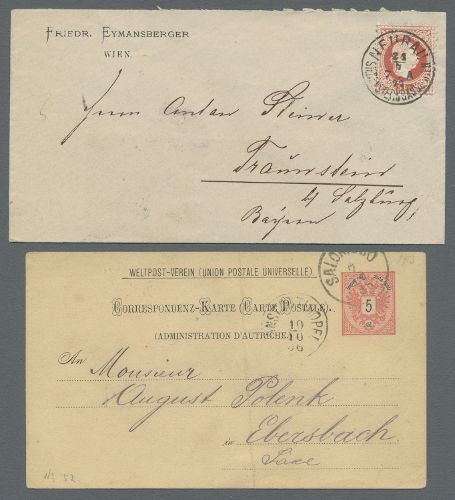 FRIEDR. EYMANSBERGER
WIEN.
NEUBAU
Herrn Anton Steiner
Traunstein
b/ Salzburg,
Bayern
WELTPOST-VEREIN (UNION POSTALE UNIVERSELLE)
CORRESPONDENZ-KARTE (CARTE POSTALE).
(ADMINISTRATION D'AUTRICHE)
5
10
10
86
An Monsieur
August Polenk
in Ebersbach
Saxe
No. 52